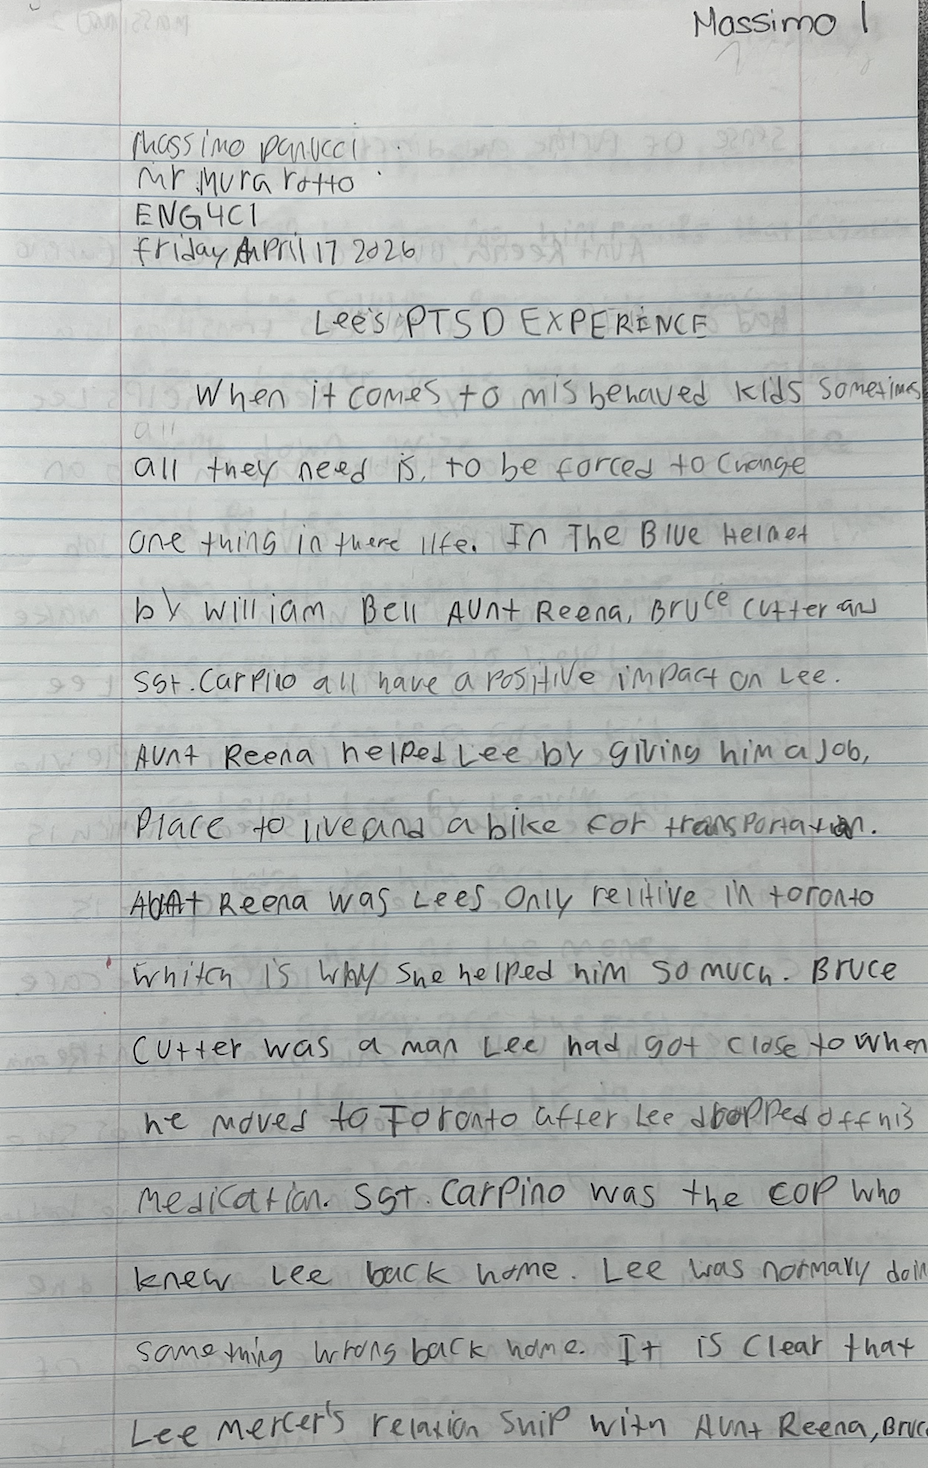 Massimo 1
Massimo Panucci
Mr Murarotto
ENG4C1
Friday April 17 2026
Lee's PTSD EXPERENCE
When it comes to misbehaved kids sometimes
all
all they need is, to be forced to change
one thing in there life. In The Blue Helmet
by William Bell Aunt Reena, Bruce Cutter and
Sgt. Carpino all have a positive impact on Lee.
Aunt Reena helped Lee by giving him a Job,
Place to live and a bike for transportation.
Aunt Reena was Lees only relitive in toronto
whitch is why she helped him so much. Bruce
Cutter was a man Lee had got close to when
he moved to Toronto after Lee dropped off his
Medication. Sgt. Carpino was the cop who
knew Lee back home. Lee was normaly doin
something wrong back home. It is clear that
Lee Mercer's relationship with Aunt Reena, Bruc